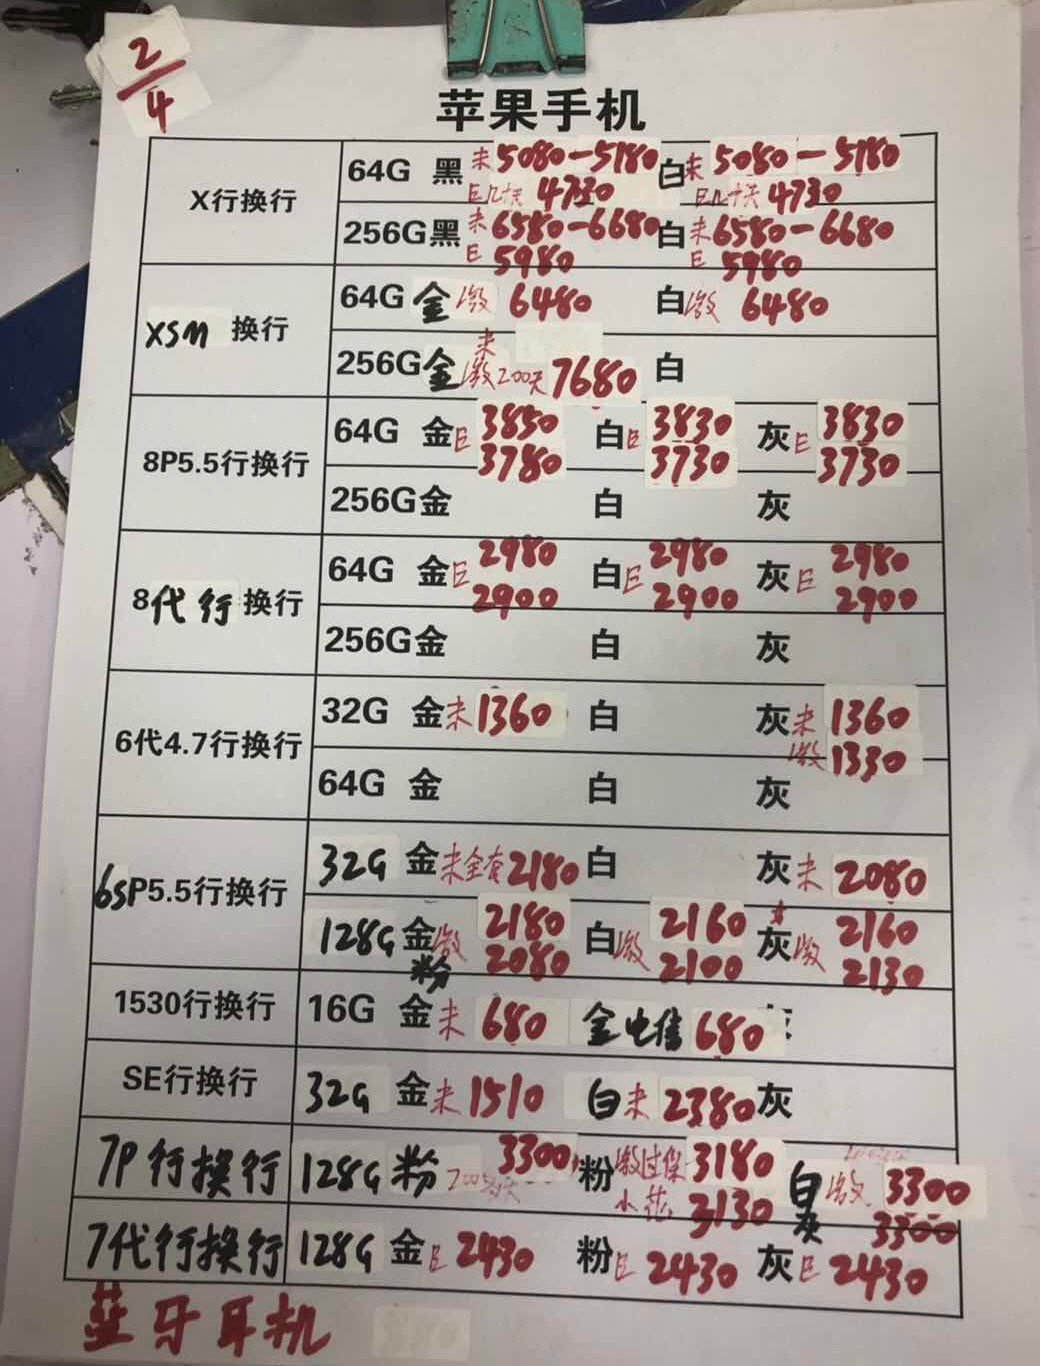 2/4
苹果手机
X行换行 64G 黑 未5080-5180 白未 5080-5180
已几十天 4730 已几十天 4730
256G黑 未6580-6680 白未6580-6680
E 5980 E 5980
XSM 换行 64G 金 激 6480 白激 6480
256G金 未激200天 7680 白
8P5.5行换行 64G 金E 3850 白E 3830 灰E 3830
3780 3730 3730
256G金 白 灰
8代行换行 64G 金E 2980 白E 2980 灰E 2980
2900 2900 2900
256G金 白 灰
6代4.7行换行 32G 金未1360 白 灰未 1360
激1330
64G 金 白 灰
6SP5.5行换行 32G 金未全套2180 白 灰未 2080
128G 金激 2180 白激 2160 灰激 2160
粉 2080 2100 2130
1530行换行 16G 金未 680 金电信 680
SE行换行 32G 金未1510 白未2380 灰
7P行换行 128G 粉 3300 粉激过保3180 白激 3300
小花 3130 灰 3300
7代行换行 128G 金E 2430 粉E 2430 灰E 2430
蓝牙耳机